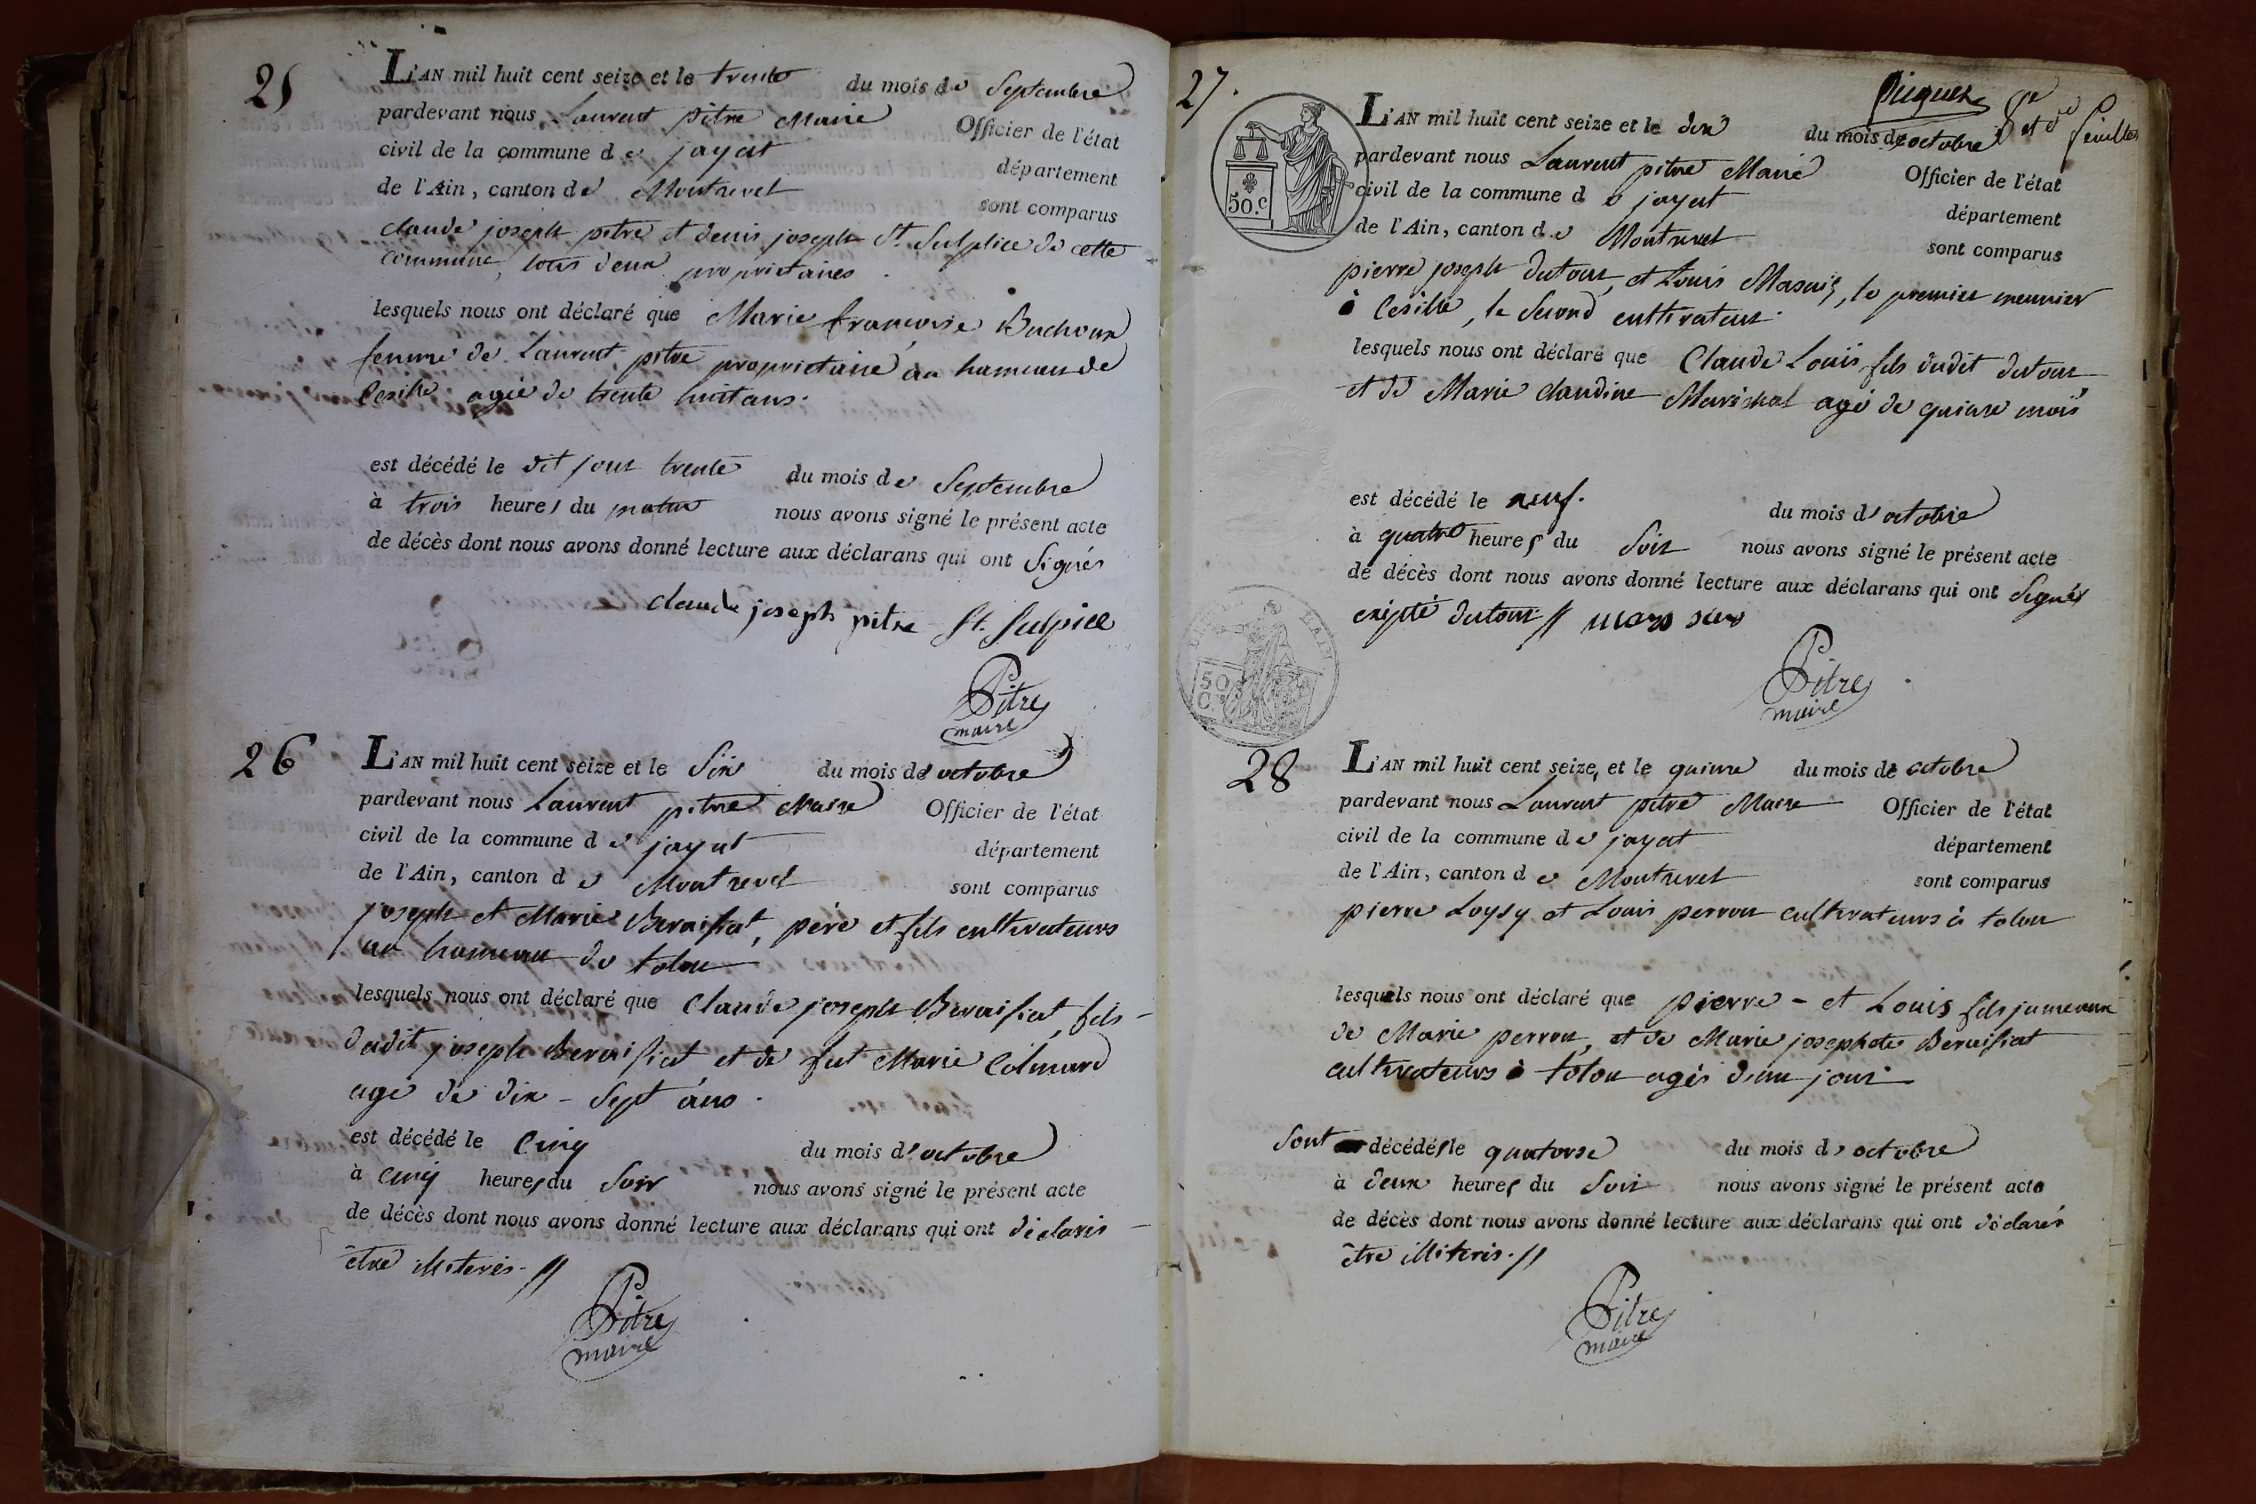 25
L'AN mil huit cent seize et le trente du mois de Septembre
pardevant nous Laurent pitre Maire Officier de l'état
civil de la commune de jayat département
de l'Ain, canton de Montrevel sont comparus
claude joseph pitre et denis joseph St. Sulpice de cette
commune, tous deux proprietaires.
lesquels nous ont déclaré que Marie françoise Buchoux
femme de Laurent pitre proprietaire au hameau de
Cesille agée de trente huit ans.
est décédé le dit jour trente du mois de Septembre
à trois heures du matin nous avons signé le présent acte
de décès dont nous avons donné lecture aux déclarans qui ont Signés
claude joseph pitre St. Sulpice
Pitre
maire
26
L'AN mil huit cent seize et le Six du mois de octobre
pardevant nous Laurent pitre Maire Officier de l'état
civil de la commune de jayat département
de l'Ain, canton de Montrevel sont comparus
joseph et Marie Beraisiat, père et fils cultivateurs
au hameau de tolou
lesquels nous ont déclaré que Claude joseph Beraisiat, fils
dudit joseph Beraisiat et de fut Marie Colmard
age de dix-Sept ans.
est décédé le Cinq du mois d'octobre
à Cinq heures du Soir nous avons signé le présent acte
de décès dont nous avons donné lecture aux déclarans qui ont déclarés
être illiterés.//
Pitre
maire
27.
feuillet
50.C
L'AN mil huit cent seize et le dix du mois de octobre
pardevant nous Laurent pitre Maire Officier de l'état
civil de la commune de jayat département
de l'Ain, canton de Montrevel sont comparus
pierre joseph dutour, et Louis Masuis, le premier meunier
à Cesille, le Second cultivateur.
lesquels nous ont déclaré que Claude Louis fils dudit dutour
et de Marie claudine Maréchal agé de quinze mois
est décédé le neuf. du mois d'octobre
à quatre heures du Soir nous avons signé le présent acte
de décès dont nous avons donné lecture aux déclarans qui ont Signés
exepté dutour //
Pitre
maire
50
C.
28
L'AN mil huit cent seize, et le quinze du mois de octobre
pardevant nous Laurent pitre Maire Officier de l'état
civil de la commune de jayat département
de l'Ain, canton de Montrevel sont comparus
pierre Loysy et Louis perron cultivateurs à tolou
lesquels nous ont déclaré que pierre - et Louis fils jumeaux
de Marie perron, et de Marie josephte Beraisiat
cultivateurs à tolou agés d'un jour.
Sont décédés le quatorze du mois d'octobre
à deux heures du Soir nous avons signé le présent acte
de décès dont nous avons donné lecture aux déclarans qui ont déclarés
être illiterés.//
Pitre
maire